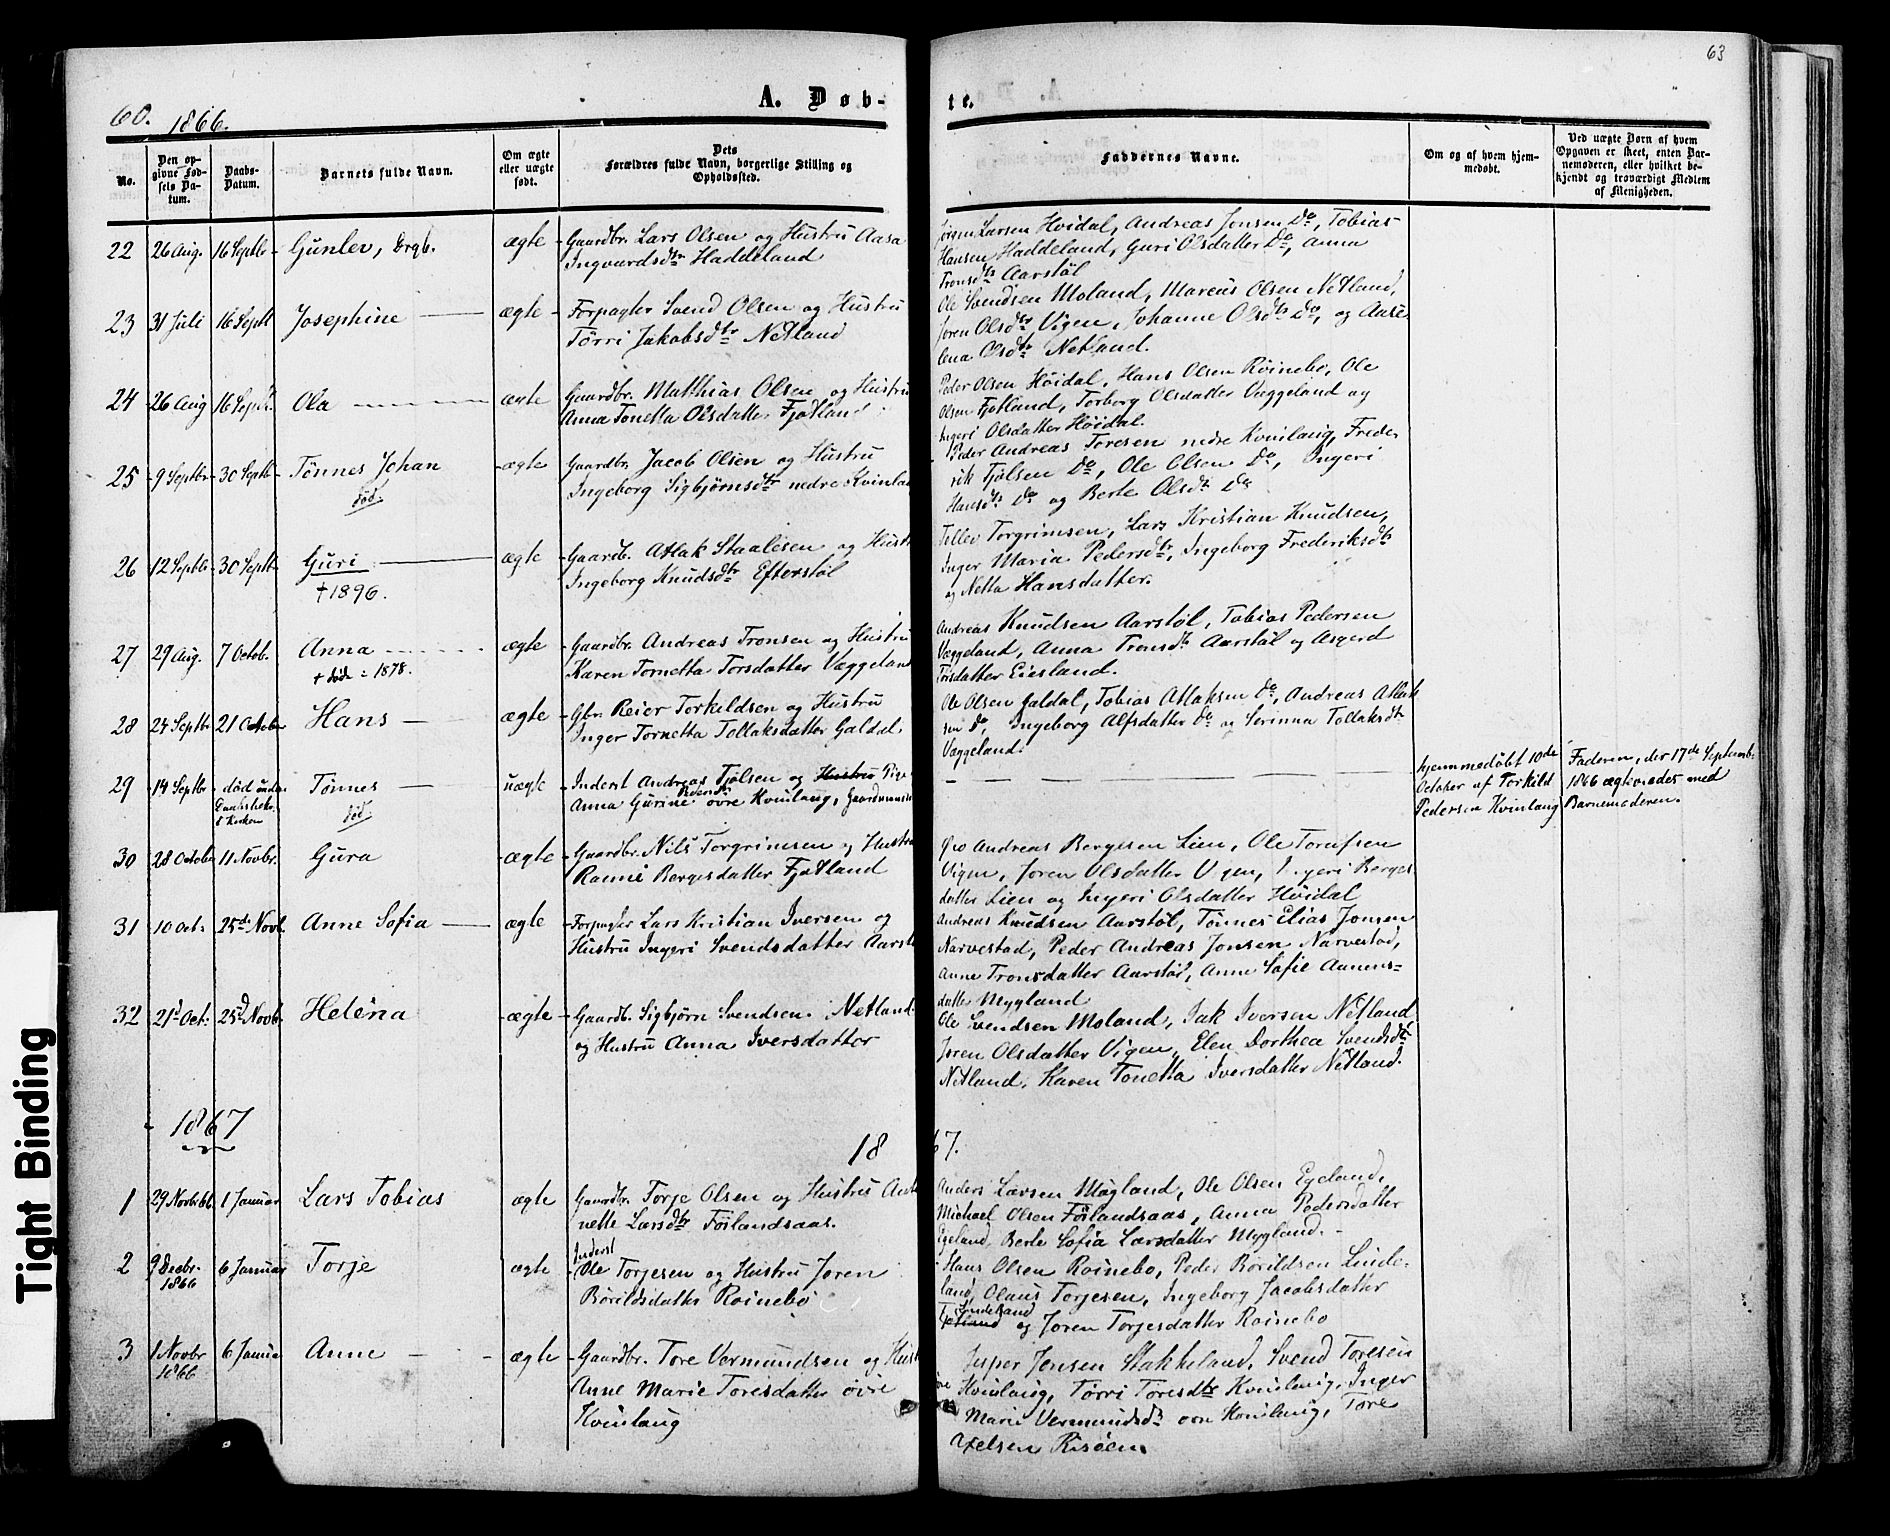 63
60. 1866.
A. Døb-
te.
No.
Den op-
givne Fød-
sels Da-
tum.
Daabs-
Datum.
Barnets fulde Navn.
Om ægte
eller uægte
født.
Dets
Forældres fulde Navn, borgerlige Stilling og
Opholdssted.
Faddernes Navne.
Om og af hvem hjem-
medøbt.
Ved uægte Børn af hvem
Opgaven er skeet, enten Bar-
nemoderen, eller hvilket be-
kjendt og troværdigt Medlem
af Menigheden.
22 26 Aug. 16 Septbr Gunlev, Drgb. ægte
Gaardbr. Lars Olsen og Hustru Aasa
Ingvardsdtr Haddeland
Jørgen Larsen Hoidal, Andreas Jonsen Do, Tobias
Hansen Haddeland, Guri Olsdatter Do, Anna
Tronsdtr Aarstøl
23 31 Juli 16 Septb Josephine ægte
Forpagter Svend Olsen og Hustru
Tørri Jakobsdtr Netland
Ole Svendsen Moland, Marcus Olsen Netland,
Joren Olsdtr Vigen, Johanne Olsdtr Do, og Aase
lena Olsdtr Netland.
24 26 Aug 16 Septbr. Ola ægte
Gaardbr. Matthias Olsen og Hustru
Anna Tonetta Olsdatter Fjotland
Peder Olsen Höidal, Hans Olsen Röinebo, Ole
Olsen Fjotland, Torborg Olsdatter Væggeland og
Ingeri Olsdatter Höidal.
25 9 Septbr 30 Septb Tønnes Johan ægte
død.
Gaardbr. Jacob Olsen og Hustru
Ingeborg Sigbjørnsdtr nedre Kvinlau
Peder Andreas Toresen nedre Kvinlaug, Frede-
rik Tjølsen Do, Ole Olsen Do, Ingeri
Hansdtr Do og Berte Olsdtr Do
26 12 Septbr 30 Septb Guri ægte
† 1896.
Gaardb. Atlak Staalesen og Hust
Ingeborg Knudsdtr Efterstøl
Tellev Torgrimsen, Lars Kristian Knudsen,
Inger Maria Pedersdtr, Ingeborg Frederiksdtr
og Netta Hansdatter.
27 29 Aug. 7 Octob. Anna ægte
† döde 1878.
Gaardbr. Andreas Tronsen og Hustru
Karen Tornetta Torsdatter Væggeland
Andreas Knudsen Aarstøl, Tobias Pedersen
Væggeland, Anna Tronsdtr Aarstøl og Asgerd
Torsdatter Eiesland.
28 24 Septbr 21 October Hans ægte
Gbr. Reier Torkildsen og Hustru
Inger Tornetta Tollaksdatter Galdal
Ole Olsen Galdal, Tobias Atlaksen Do, Andreas Atlak
sen Do, Ingeborg Alfsdatter Do og Serinna Tollaksdtr
Væggeland.
29 14 Septbr død under Tønnes uægte
død.
Inderst Andreas Tjølsen og Hustru Pige
Anna Gurine øvre Kvinlaug,
hjemmedöbt 10de
October af Torkild
Pedersen Kvinlaug
Faderen, der 17de Septemb.
1866 ægtviedes med
Barnemoderen.
30 28 Octobr 11 Novbr. Gura ægte
Gaardbr. Nils Torgrimsen og Hustru
Ranni Bergesdatter Fjotland
Andreas Bergesen Lien, Ole Tomfsen
Vigen, Joren Olsdatter Vigen, Ingeri Berges
datter Lien og Ingeri Olsdatter Höidal
31 10 Oct: 25de Novb. Anne Sofia ægte
Forpagter Lars Kristian Iversen og
Hustru Ingeri Svendsdatter Aarst
Andreas Knudsen Aarstøl, Tönnes Elias Jonsen
Narvestad, Peder Andreas Jonsen Narvestad,
Anne Tronsdatter Aarstøl, Anne Sofie Aanens-
datter Mygland
32 21d Oct: 25d Novb. Heléna ægte
Gaardb. Sigbjørn Svendsen. Netland
og Hustru Anna Iversdatter
Ole Svendsen Moland, Isak Iversen Netland
Joren Olsdatter Vigen, Elen Dorthea Svendsdtr
Netland, Karen Tonetta Iversdatter Netland.
1867
1867.
1 29 Novb 66. 1 Januar Lars Tobias ægte
Gaardbr. Torje Olsen og Hustru Ant
nette Larsdtr Förlandsaas.
Anders Larsen Mögland, Ole Olsen Egeland,
Michael Olsen Förlandsaas, Anna Pedersdatter
Egeland, Berte Sofia Larsdatter Mygland.
2 9 Decbr. 1866 6 Januar Torje ægte
Inderst
Ole Torjesen og Hustru Joren
Börildsdatter Roinebö
Hans Olsen Roinebo, Peder Börildsen Linde-
land, Olaus Torjesen, Ingeborg Jacobsdatter
Lindeland
og Joren Torjesdatter Roinebo
3 1 Novbr 1866 6 Januar Anne ægte
Gaardbr. Tore Vermundsen og Hust
Anne Marie Toresdatter øvre
Kvinlaug
Jesper Jensen Stakkeland, Svend Toresen
Kvinlaug, Tørri Toresdtr Kvinlaug, Inger
Marie Vermundsdtr øvre Kvinlaug, Tore
Axelsen Risöen
Tight Binding